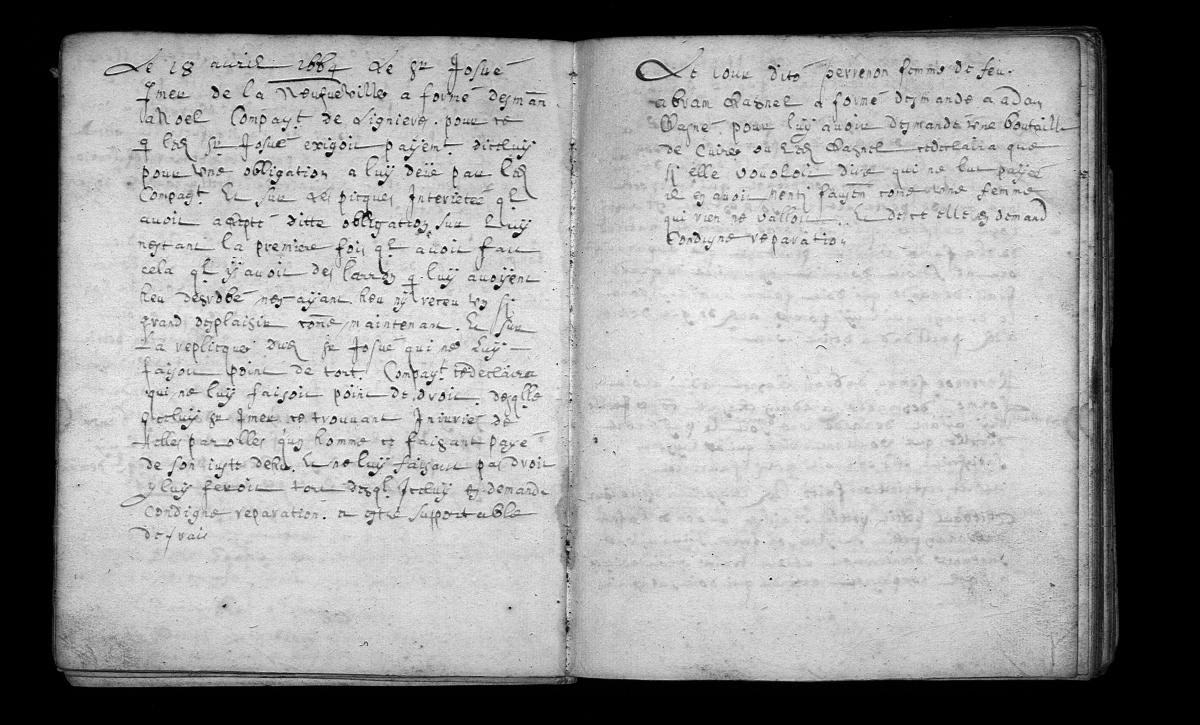 Le 18 auril 1664 Le Sr Josué
Jmer de la Neufueville a formé desman
a Noel Compagt de Ligniere. pour ce
q led Sr Josué exigoit payent dicelluy
pour vne obligation a luy deüe par led
Compagt. Et sur les picques Interietée ql
auoit acepté ditte obligation sur Luy
nestant la premiere fois ql auoit fait
cela ql yl auoit des larrons q luy auoyent
heu desrobé nes ayant heu ny receu vn si
grand desplaisir come maintenant. Et sur
la replicque dud Sr Josué qui ne Luy
faisoit point de tort. Compagt. redeclaira
qui ne luy faisoit point de droit, desqlle
Jcelluy Sr Jmer se trouuant Jniurié de
telles parolles qun homme se faisant payé
de son iuste deheu Et ne luy faisant pas droit
luy feroit tort desql. Jcelluy en demande
Condigne reparation. a estre supportable
de frais
Le iour dito perrenon femme de feu
abram Gasnel a formé desmande a adam
Gasne pour luy auoir desmandé vne boutaille
de Cuire ou led Gasnel redeclaira que
si elle vouloit dire qui ne leut payée
il en auoit menti faysen come vne femme
qui rien ne valloit. Et de ce elle en demand
Condigne reparation